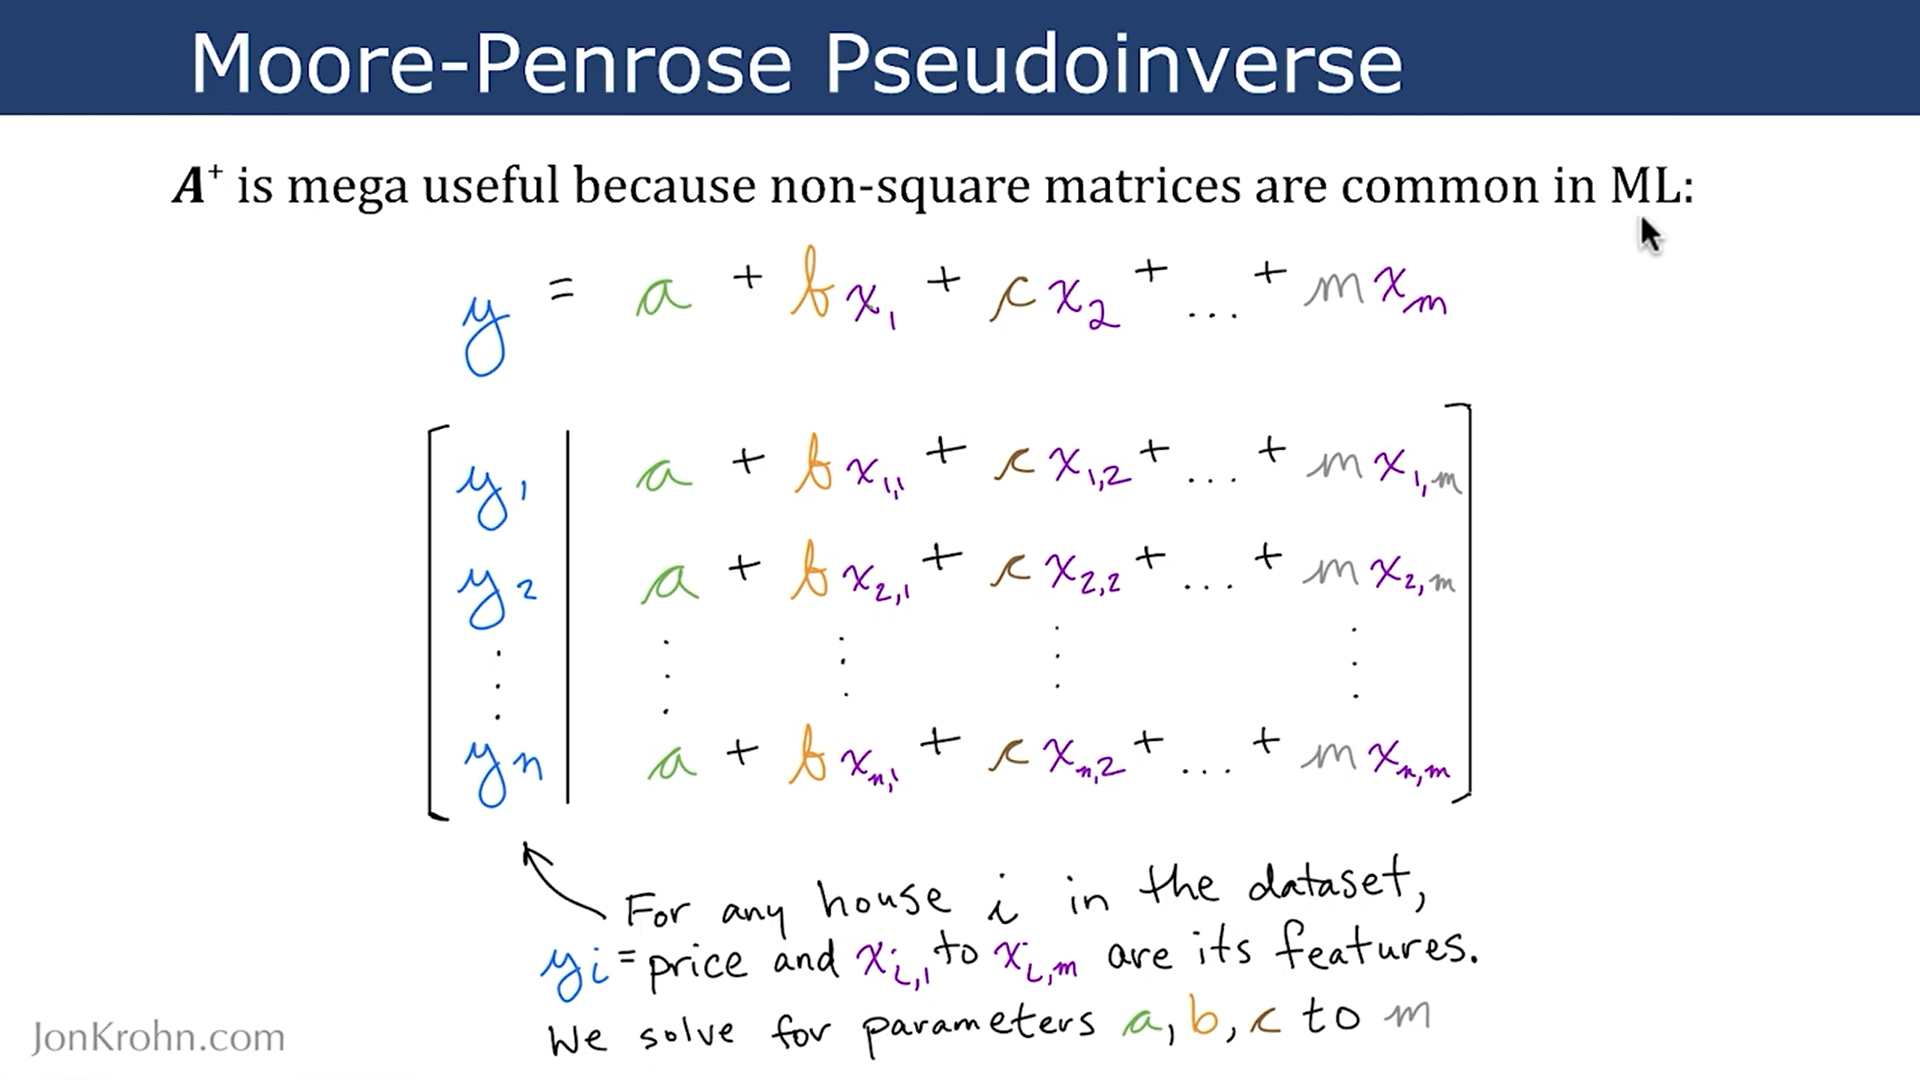 Moore-Penrose Pseudoinverse
A⁺ is mega useful because non-square matrices are common in ML:
y = a + bx₁ + cx₂ + ... + mxₘ
y₁ | a + bx₁,₁ + cx₁,₂ + ... + mx₁,ₘ
y₂ | a + bx₂,₁ + cx₂,₂ + ... + mx₂,ₘ
⋮ ⋮ ⋮ ⋮ ⋮
yₙ | a + bxₙ,₁ + cxₙ,₂ + ... + mxₙ,ₘ
For any house i in the dataset,
yᵢ = price and xᵢ,₁ to xᵢ,ₘ are its features.
We solve for parameters a, b, c to m
JonKrohn.com